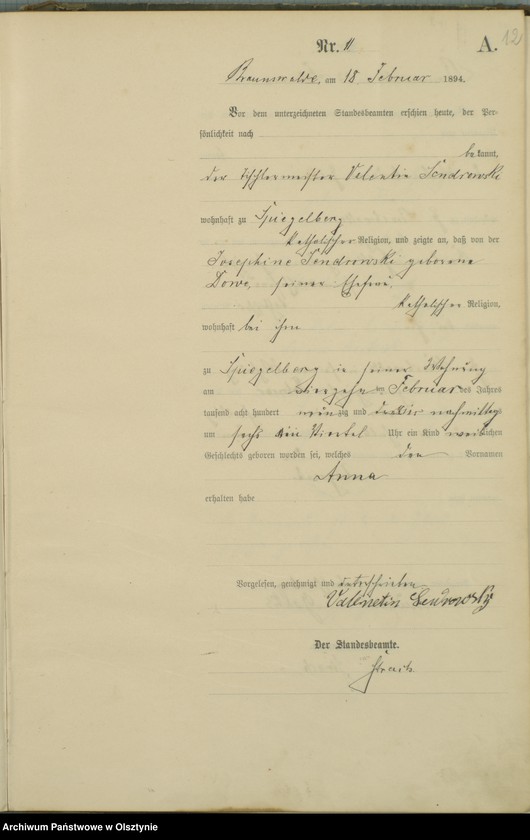 12
Nr. 11 A.
Braunswalde, am 18 Februar 1894.
Vor dem unterzeichneten Standesbeamten erschien heute, der Per-
sönlichkeit nach
bekannt,
der Tischlermeister Valentin Sendrowski
wohnhaft zu Spiegelberg
katholischer Religion, und zeigte an, daß von der
Josephine Sendrowski geborene
seiner Ehefrau
katholischer Religion,
wohnhaft bei ihm
zu Spiegelberg in seiner Wohnung
am vierzehn ten Februar des Jahres
tausend acht hundert neun zig und nachmittags
um sechs ein Viertel Uhr ein Kind weiblichen
Geschlechts geboren worden sei, welches den Vornamen
Anna
erhalten habe
Vorgelesen, genehmigt und unterschrieben
Vallnetin
Der Standesbeamte.
Archiwum Państwowe w Olsztynie